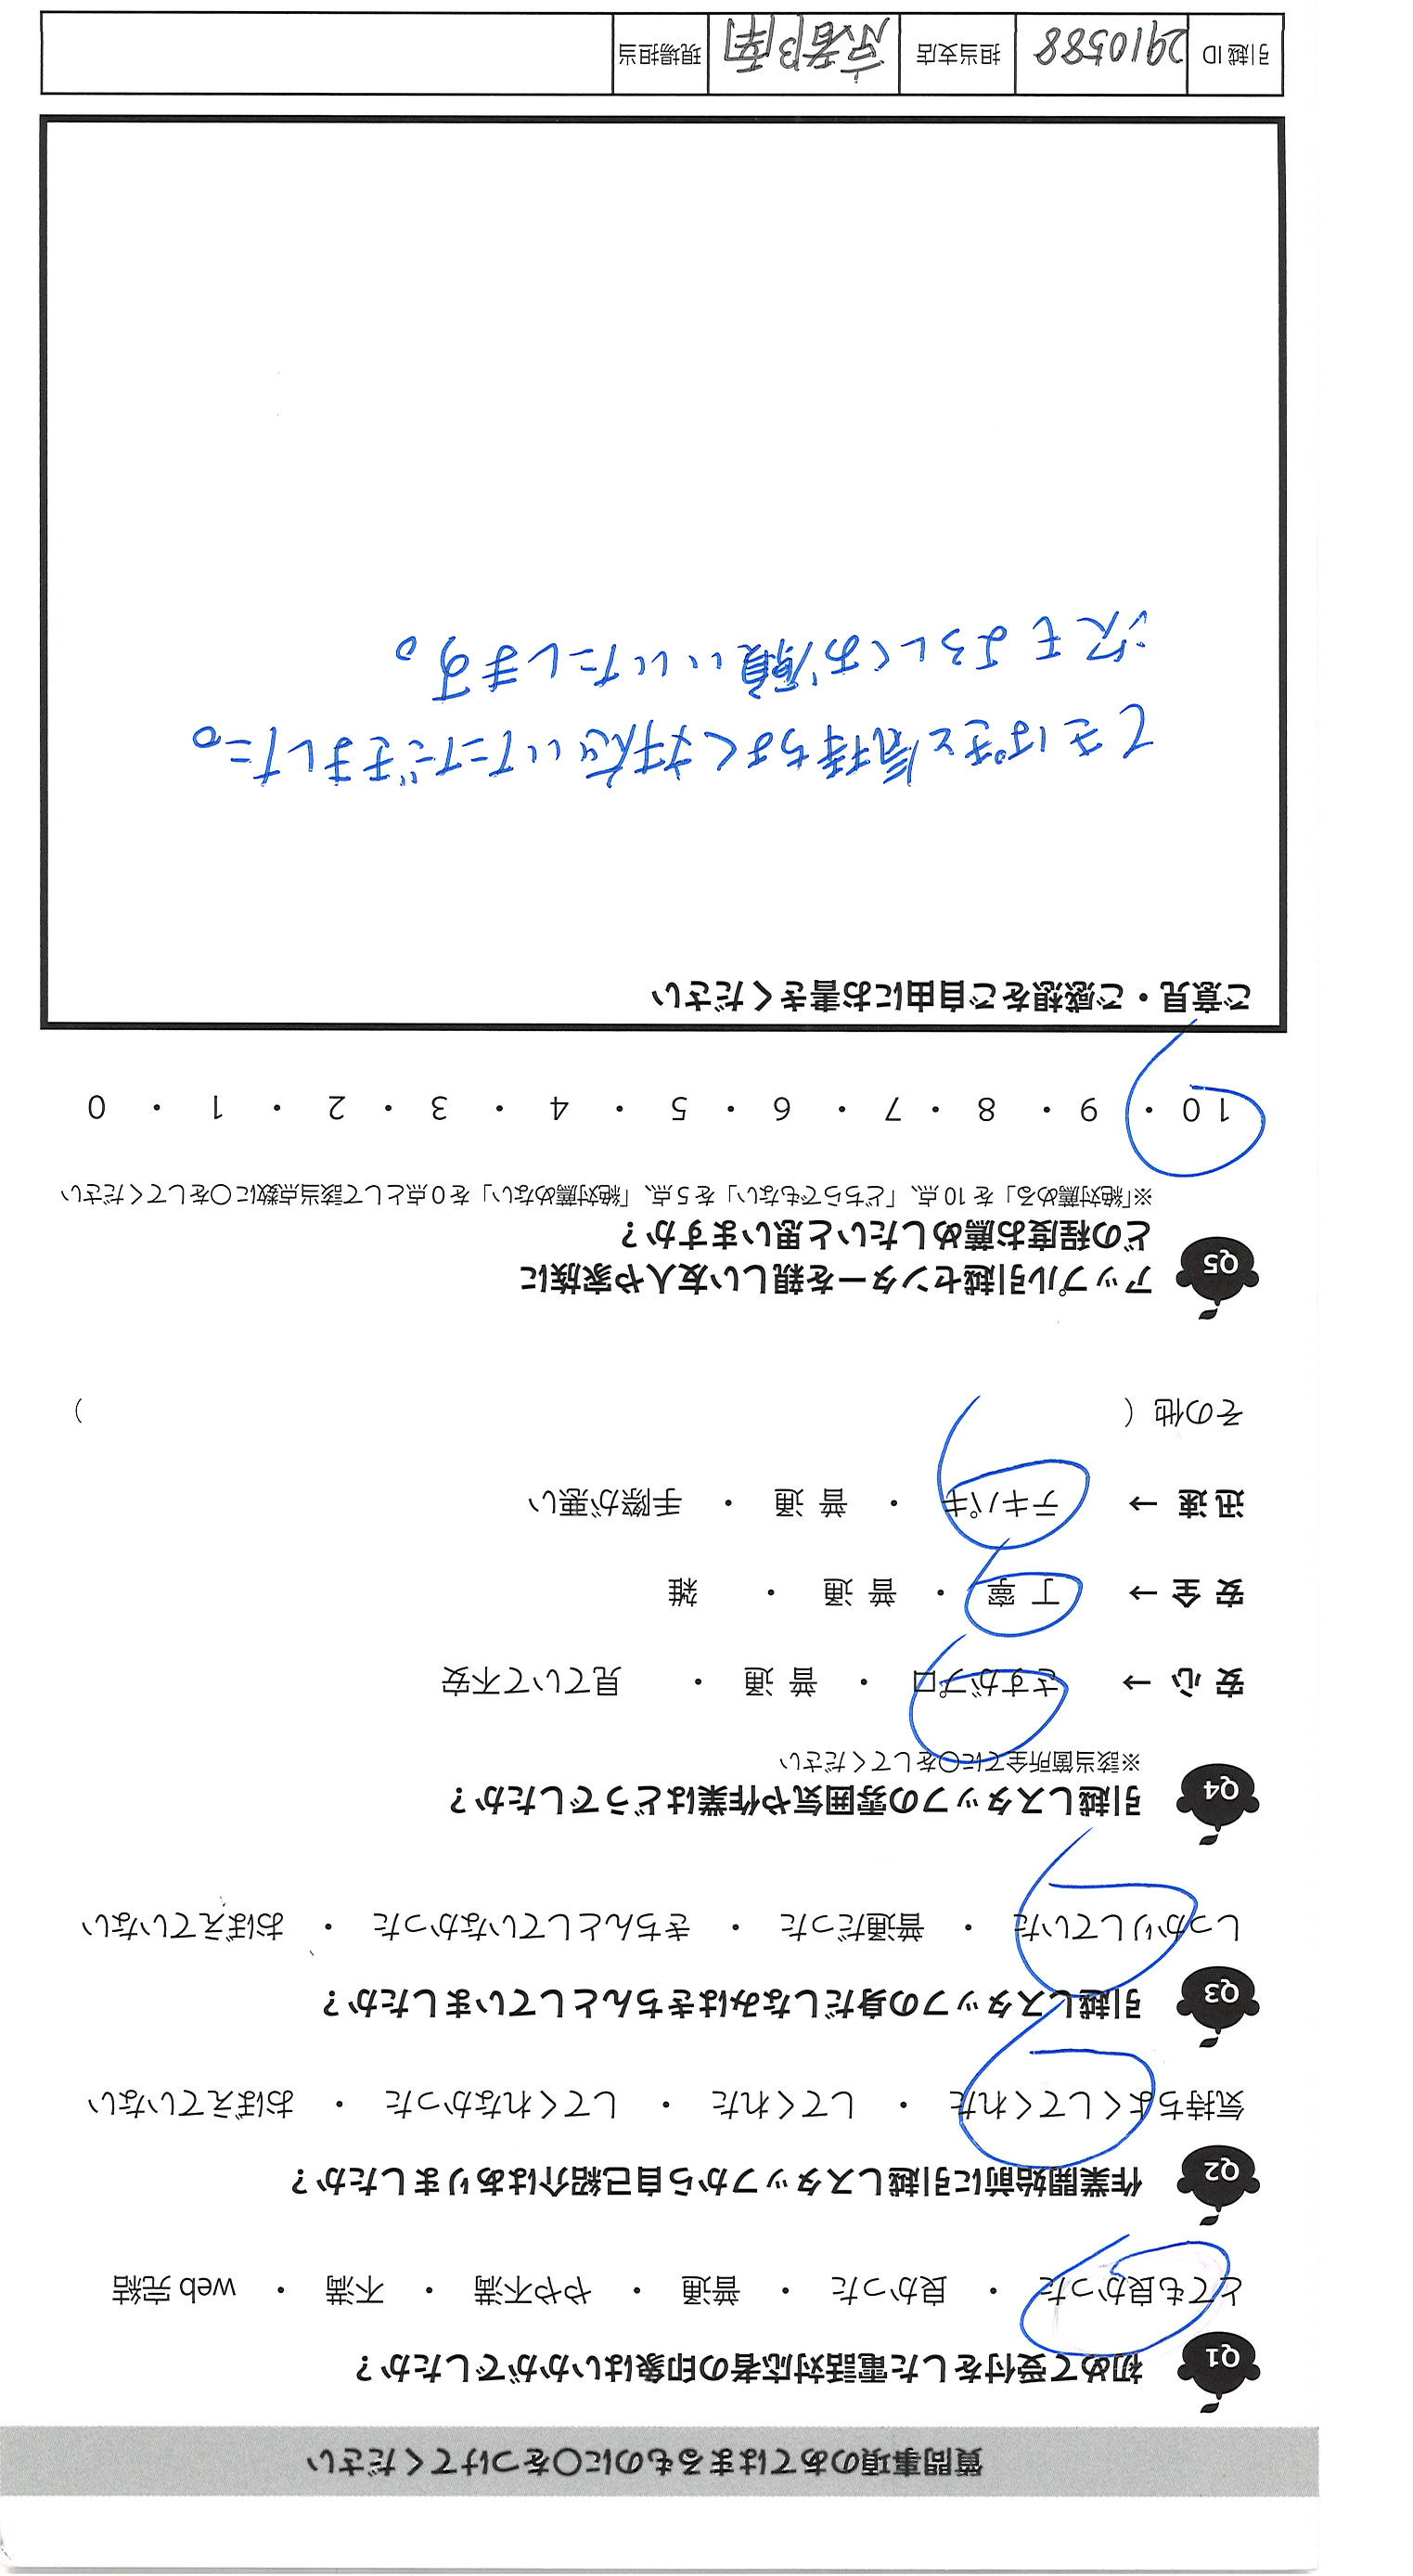 質問事項のあてはまるものに〇をつけてください
Q1 初めて受付をした電話対応者の印象はいかがでしたか？
とても良かった ・ 良かった ・ 普通 ・ やや不満 ・ 不満 ・ web 完結
Q2 作業開始前に引越しスタッフから自己紹介はありましたか？
気持ちよくしてくれた ・ してくれた ・ してくれなかった ・ おぼえていない
Q3 引越しスタッフの身だしなみはきちんとしていましたか？
しっかりしていた ・ 普通だった ・ きちんとしていなかった ・ おぼえていない
Q4 引越しスタッフの雰囲気や作業はどうでしたか？
※該当箇所全てに〇をしてください
安 心 → さすがプロ ・ 普 通 ・ 見ていて不安
安 全 → 丁 寧 ・ 普 通 ・ 雑
迅 速 → テキパキ ・ 普 通 ・ 手際が悪い
その他（ ）
Q5 アップル引越センターを親しい友人や家族に
どの程度お薦めしたいと思いますか？
※「絶対薦める」を 10 点、「どちらでもない」を 5 点、「絶対薦めない」を 0 点として該当点数に〇をしてください
10 ・ 9 ・ 8 ・ 7 ・ 6 ・ 5 ・ 4 ・ 3 ・ 2 ・ 1 ・ 0
ご意見・ご感想をご自由にお書きください
てきぱきと気持ちよく対応いただきました。
次もよろしくお願いいたします。
引越 ID 2910588 担当支店 京都南 現場担当